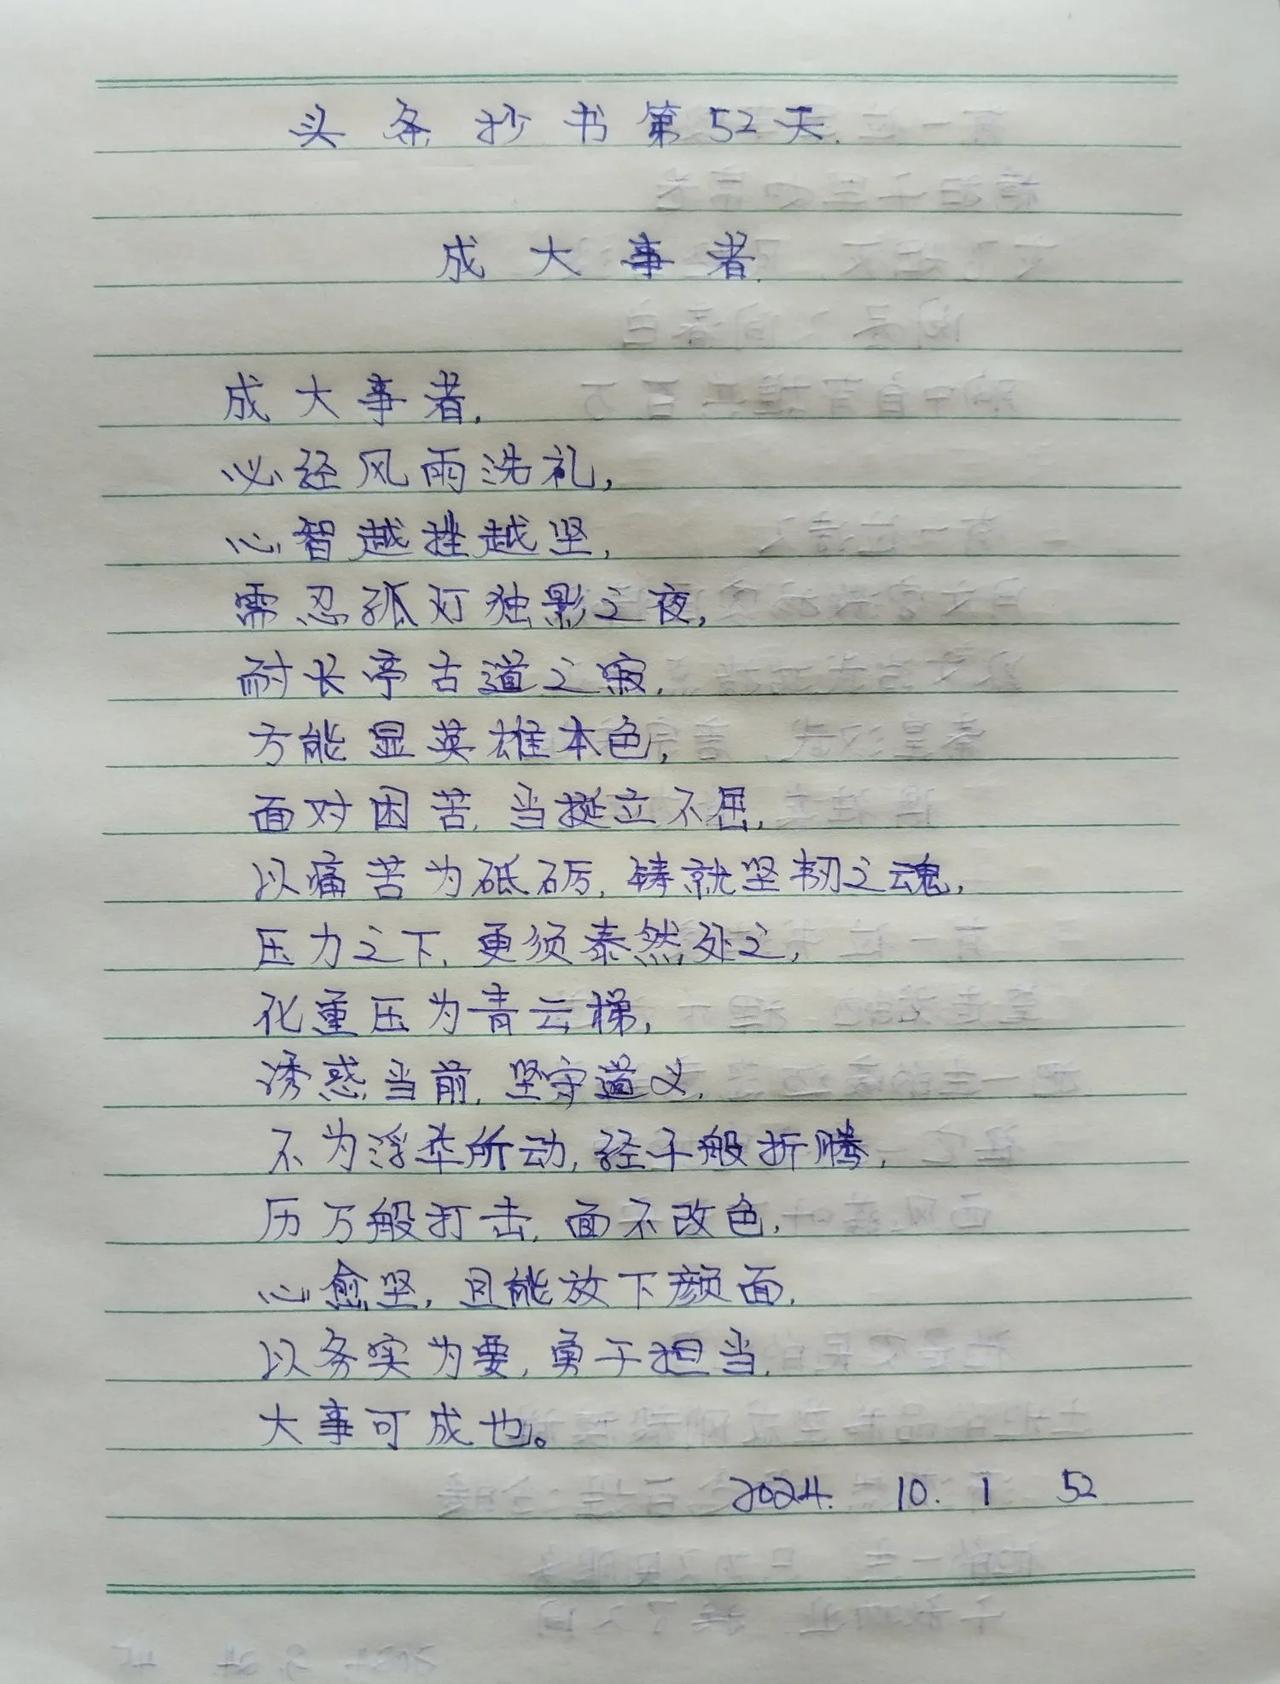 头条抄书第52天.
成大事者.
成大事者,
必经风雨洗礼,
心智越挫越坚,
需忍孤灯独影之夜,
耐长亭古道之寂,
方能显英雄本色,
面对困苦,当挺立不屈,
以痛苦为砥砺,铸就坚韧之魂,
压力之下,更须泰然处之,
化重压为青云梯,
诱惑当前,坚守道义,
不为浮华所动,经千般折腾,
历万般打击,面不改色,
心愈坚,且能放下颜面,
以务实为要,勇于担当,
大事可成也。
2024. 10. 1 52